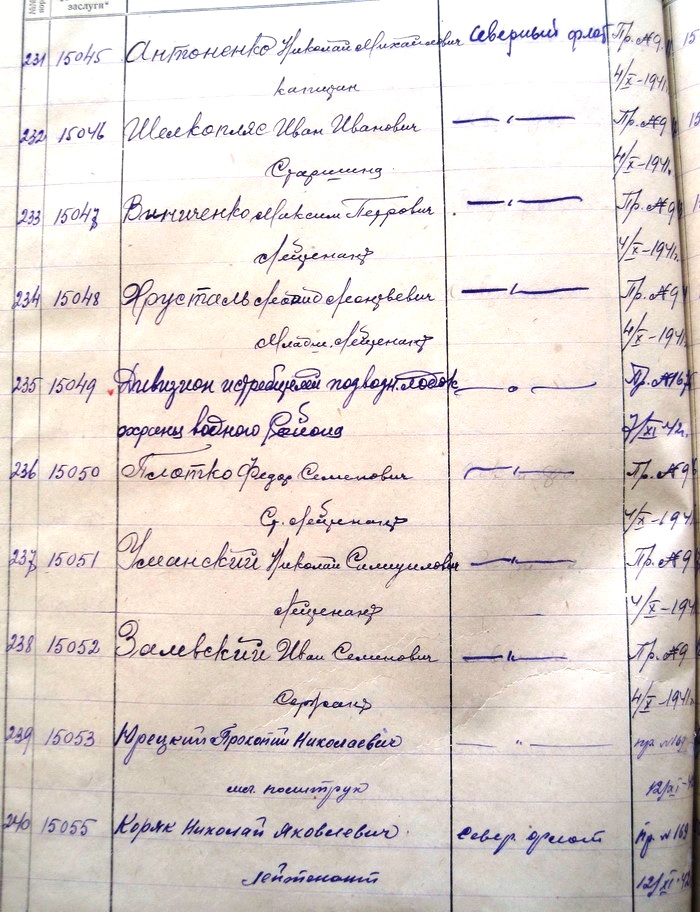 заслуги*
231 15045 Антоненко Николай Михайлович Северный флот Пр. №9
капитан 4/X-1941г.
232 15046 Шелкопляс Иван Иванович —"— Пр. №9
Старшина 4/X-1941г.
233 15047 Виниченко Максим Петрович —"— Пр. №9
Лейтенант 4/X-1941г.
234 15048 Хрусталь Леонид —"— Пр. №9
Младш. Лейтенант 4/X-1941
235 15049 Дивизион истребителей подводн. лодок —"— Пр. №167
охраны водного района 7/XI-42г.
236 15050 Плотко Федор Семенович —"— Пр. №9
Ст. Лейтенант 4/X-1941
237 15051 Уманский Николай —"— Пр. №9
Лейтенант 4/X-194
238 15052 Залевский Иван Семенович —"— Пр. №9
Сержант 4/X-1941г.
239 15053 Юрецкий Прокопий Николаевич —"— пр. №169
мл. политрук 12/XI-4
240 15055 Коряк Николай Яковлевич Север. флот Пр. №169
лейтенант 12/XI-42